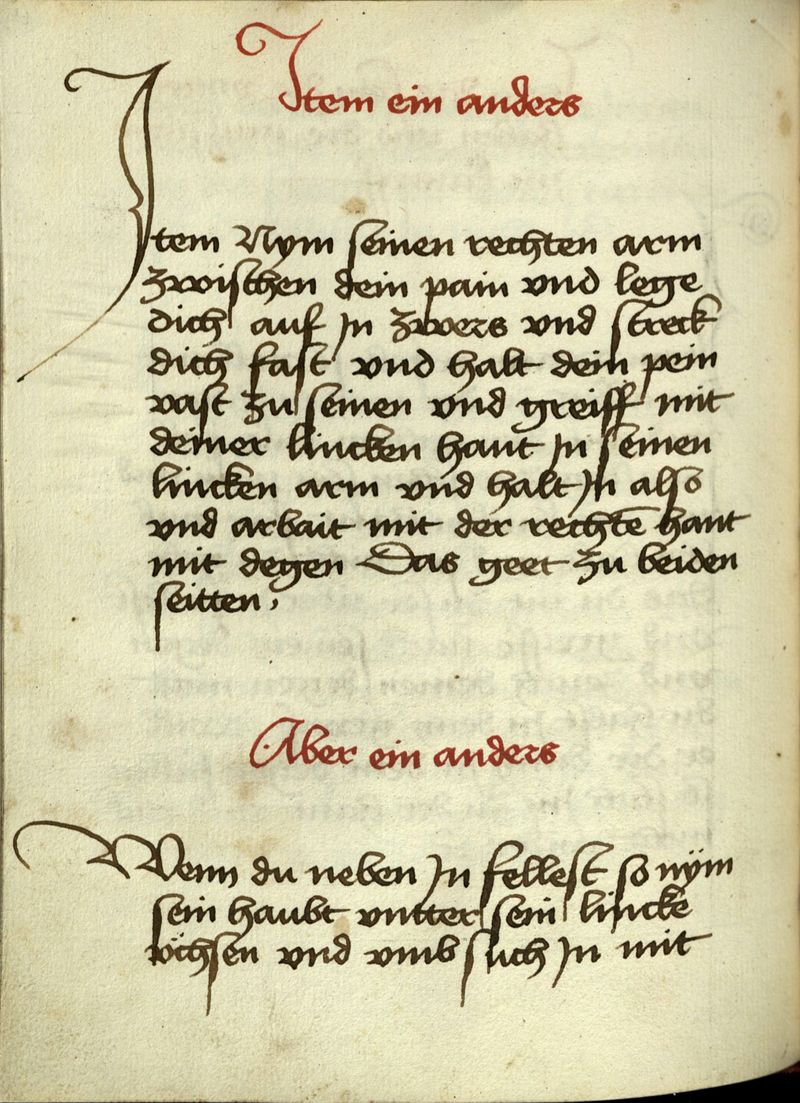 Item ein anders
Item Nym seinen rechten arm
zwischen dein pain vnd lege
dich auf In zwers vnd streck
dich fast vnd halt dein pein
vast zu seinen vnd greiff mit
deiner lincken hant In seinen
lincken arm vnd halt In also
vnd arbait mit der rechtē hant
mit degen Das geet zu beiden
seitten,
Aber ein anders
Wenn du neben In fellest so nÿm
sein haubt vntter sein lincke
vchsen vnd vmb such In mit